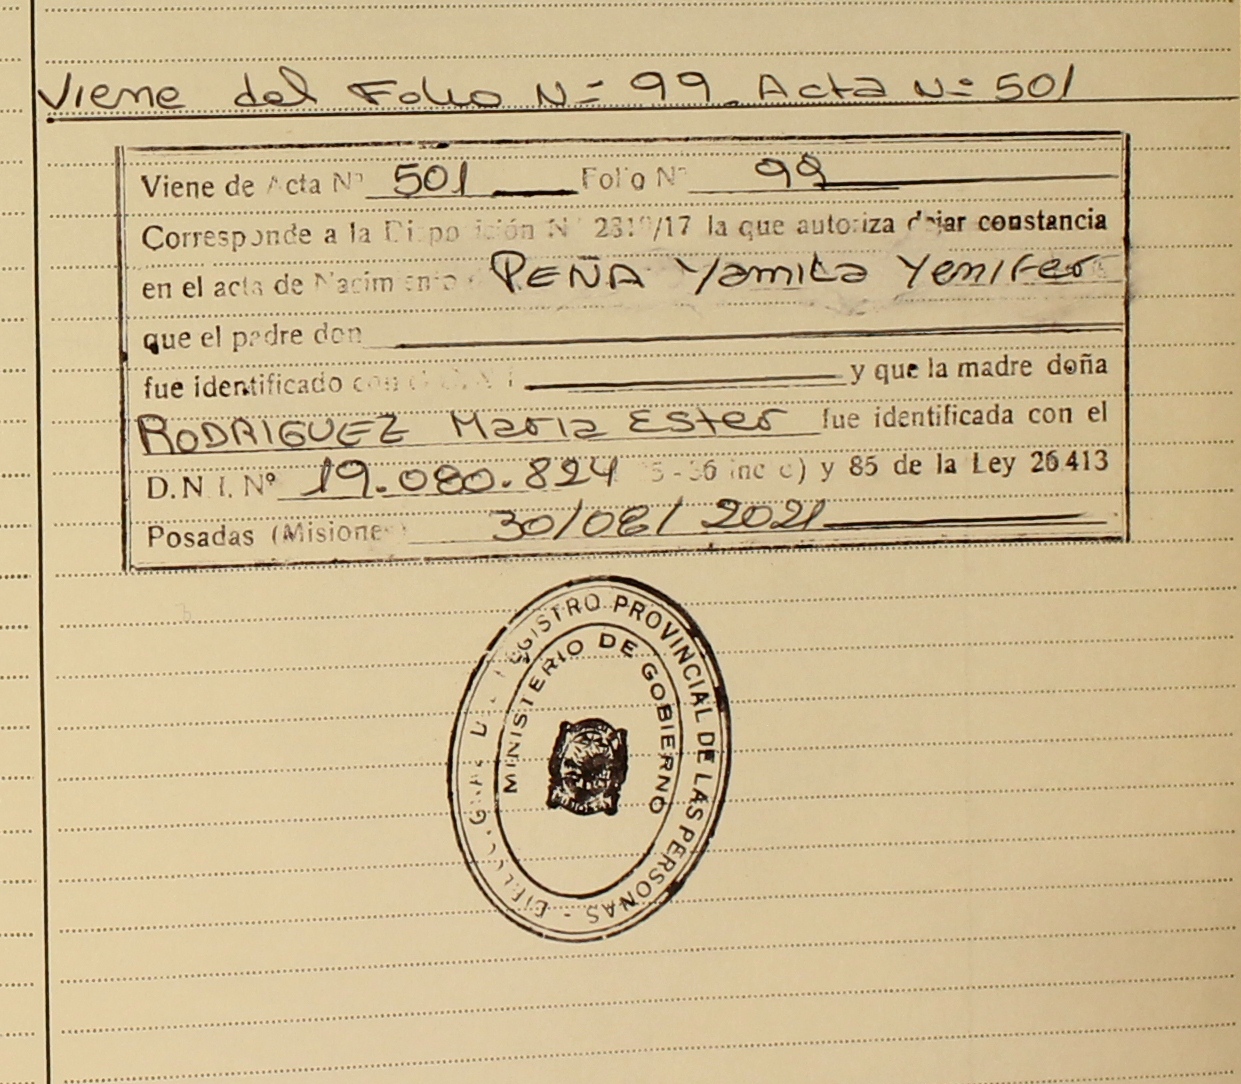 Viene del Folio N= 99. Acta N= 501
Viene de Acta N° 501 Folio N° 99
Corresponde a la Disposición N° /17 la que autoriza dejar constancia
en el acta de Nacimiento PEÑA Yamila Yenifer
que el padre don
fue identificado con y que la madre doña
RODRIGUEZ Maria Ester fue identificada con el
D.N.I. N° 19.080.824 inc c) y 85 de la Ley 26413
Posadas (Misiones) 30/08/2021
REGISTRO PROVINCIAL DE LAS PERSONAS -
MINISTERIO DE GOBIERNO